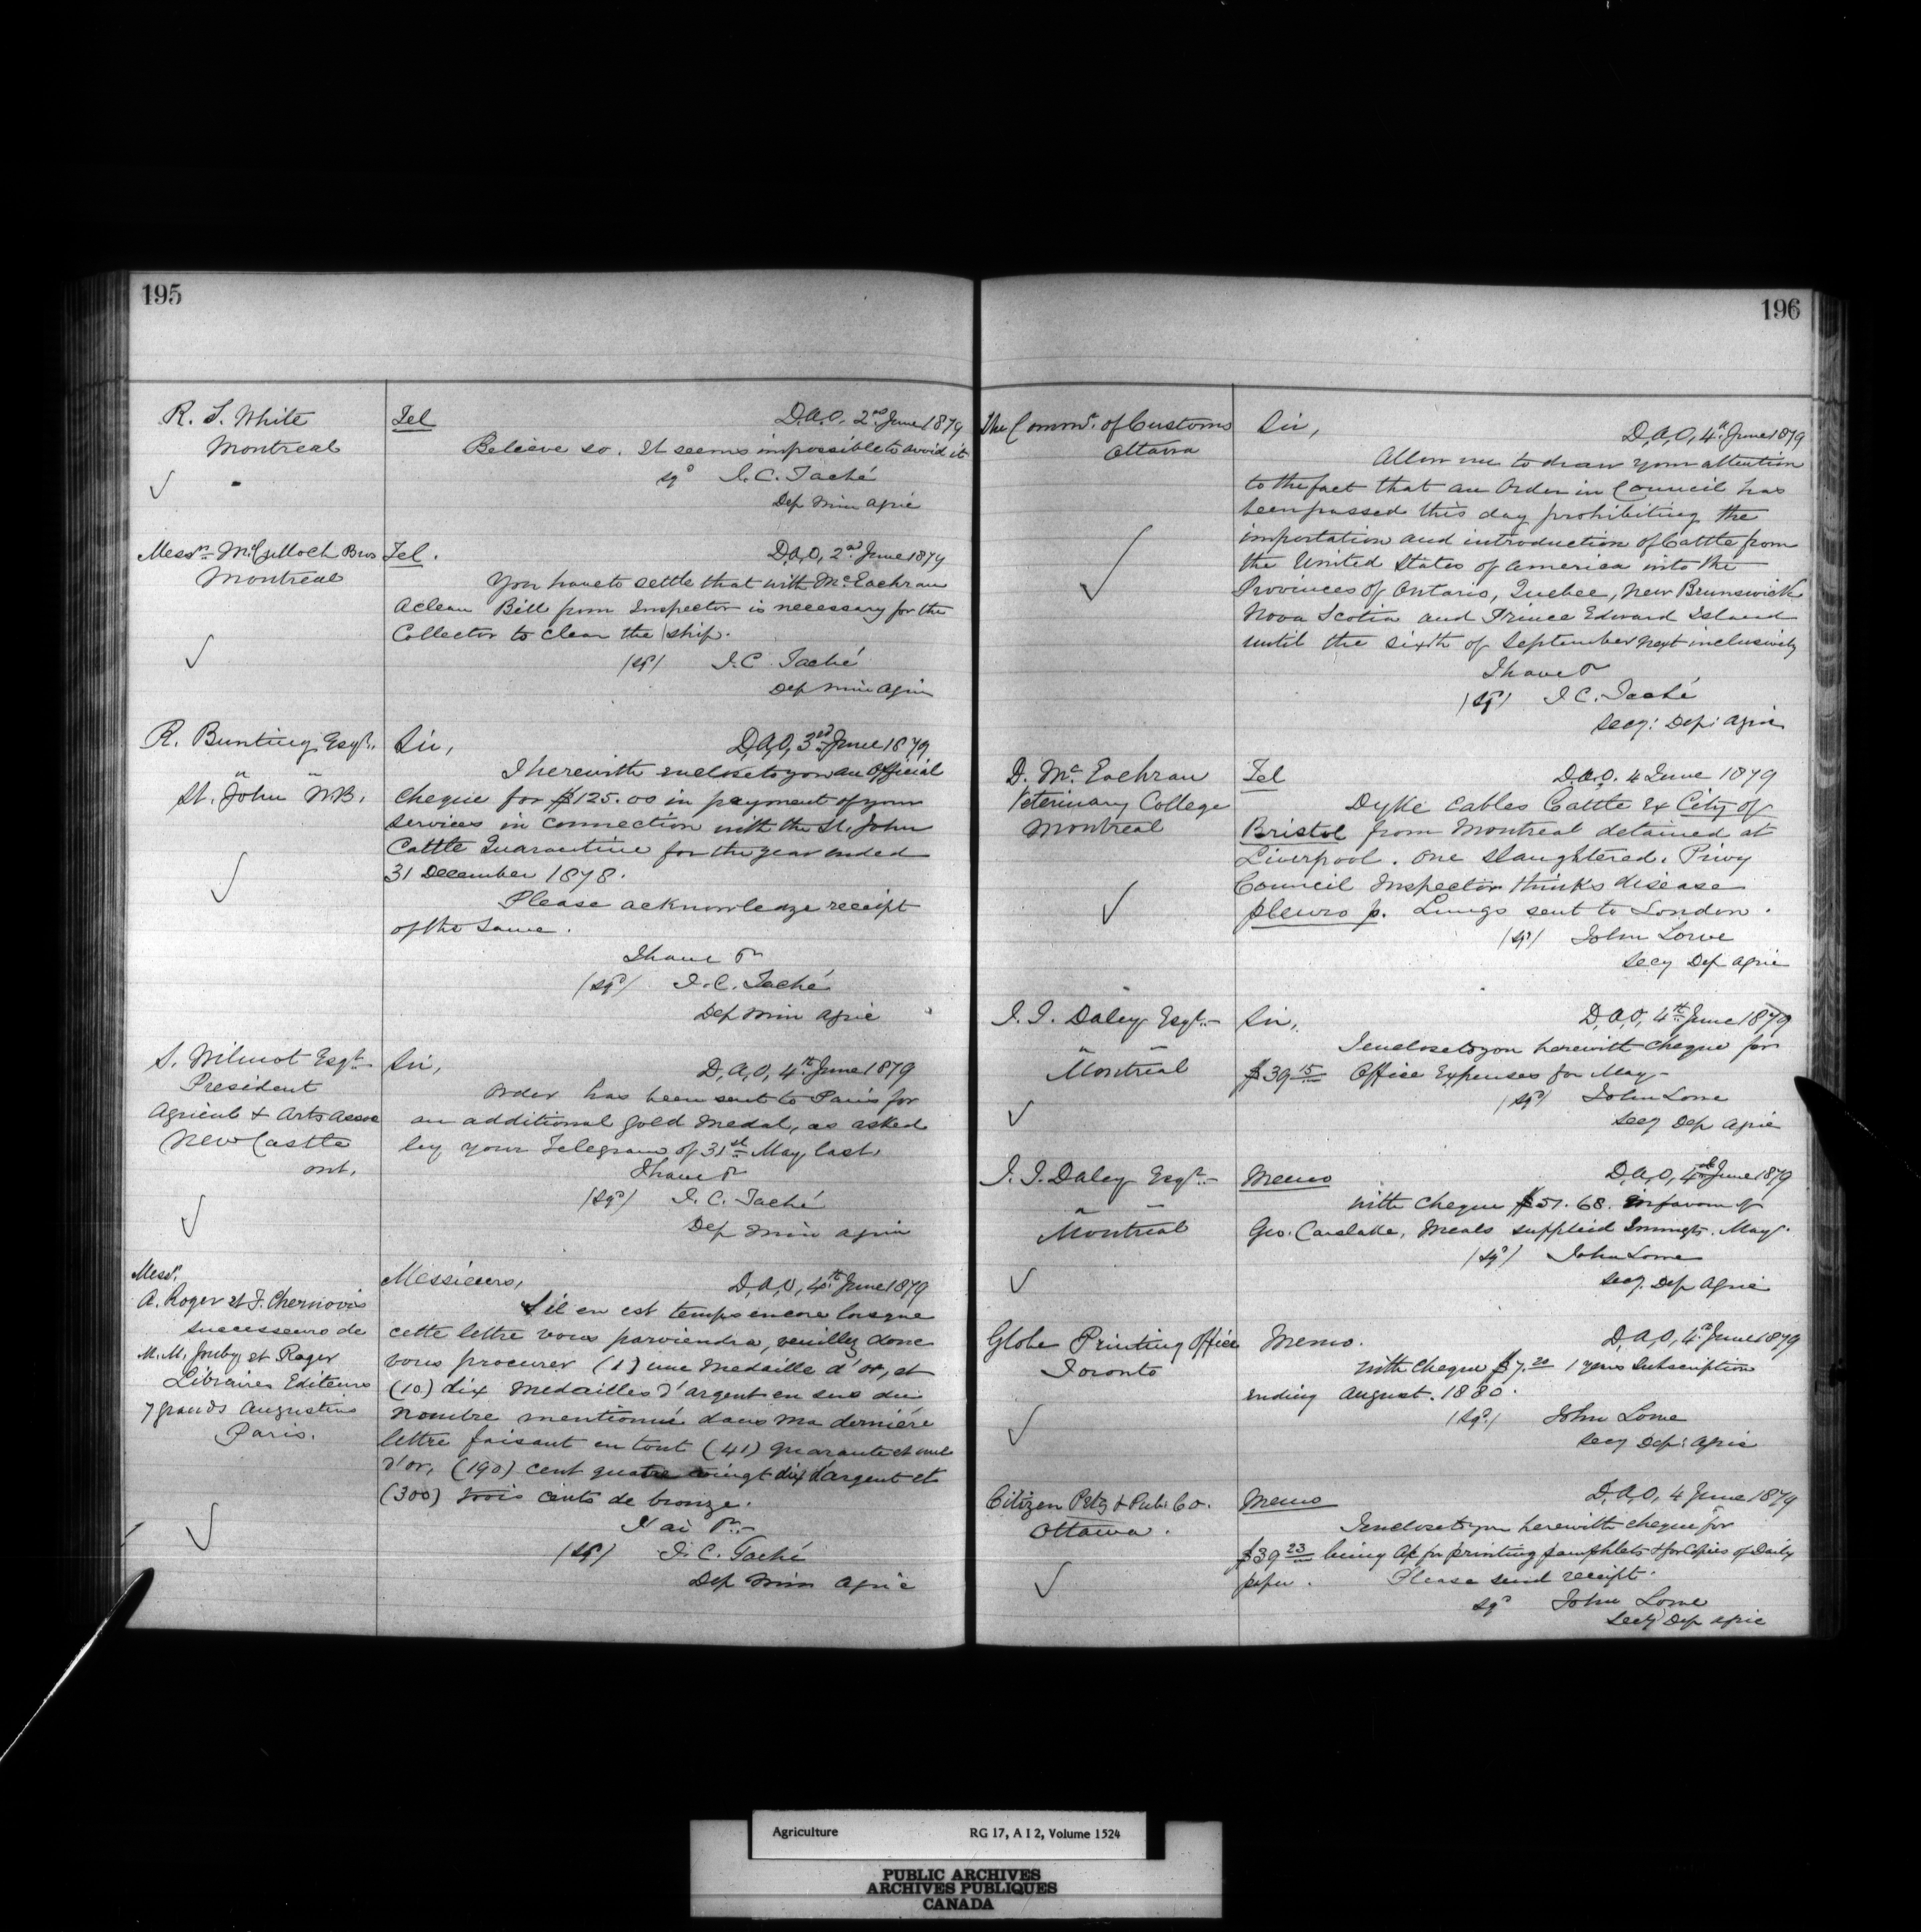 195
R. S. White
Montreal
Tel
D.A.O, 2nd June 1879
Believe so. It seems impossible to avoid it
sgd J. C. Taché
Dep Min Agric
Messrs McCulloch Bros
Montreal
Tel.
D.A.O, 2nd June 1879
You have to settle that with McEachran
A clean Bill from Inspector is necessary for the
Collector to clear the ship.
/sgd/ J. C. Taché
Dep Min Agric
R. Bunting Esqr.
St. John N.B.
Sir,
D,A,O, 3rd June 1879
I herewith enclose to you an Official
cheque for $125.00 in payment of your
services in connection with the St. John
Cattle Quarantine for the year ended
31 December 1878.
Please acknowledge receipt
of the same.
I have &c
/sgd/ J. C. Taché
Dep Min Agric
S. Wilmot Esqr.
President
Agricult & Arts Assoc
New Castle
Ont.
Sir,
D,A,O, 4th June 1879
Order has been sent to Paris for
an additional gold medal, as asked
by your Telegram of 31st May last.
I have &c
/sgd/ J. C. Taché
Dep Min Agric
Messrs
A. Roger et F. Chernoviz
successeurs de
M.M. Juby et Roger
Libraires Editeurs
7 grands Augustins
Paris.
Messieurs,
D,A,O, 4th June 1879
S'il en est temps encore lorsque
cette lettre vous parviendra, veuillez donc
vous procurer (1) une Medaille d'or, et
(10) dix Medailles d'argent en sus du
nombre mentionné dans ma derniére
lettre faisant en tout (41) quarante et une
d'or, (190) cent quatre vingt dix d'argent et
(300) trois cents de bronze.
J'ai &c.
/sgd/ J. C. Taché
Dep Min Agric
196
The Commr. of Customs
Ottawa
Sir,
D,A,O, 4th June 1879
Allow me to draw your attention
to the fact that an Order in Council has
been passed this day prohibiting the
importation and introduction of Cattle from
the United States of America into the
Provinces of Ontario, Quebec, New Brunswick
Nova Scotia and Prince Edward Island
until the sixth of September next inclusively
I have &c
/sgd/ J. C. Taché
Secy: Dep: Agric
D. McEachran
Veterinary College
Montreal
Tel
D.A.O. 4 June 1879
Dyke cables Cattle Ex City of
Bristol from Montreal detained at
Liverpool. One slaughtered. Privy
Council Inspector thinks disease
pleuro p. Lungs sent to London.
/sgd/ John Lowe
Secy Dep Agric
J. J. Daley Esqr.
Montreal
Sir,
D,A,O, 4th June 1879
I enclose to you herewith cheque for
$39.15 Office Expenses for May
/sgd/ John Lowe
Secy Dep Agric
J. J. Daley Esqr.
Montreal
Memo
D,A,O, 4th June 1879
With cheque $51.68. in favour of
Geo. Carslake, Meals supplied Immigts. May.
/sgd/ John Lowe
Secy. Dep Agric
Globe Printing Office
Toronto
Memo.
D,A,O, 4th June 1879
With cheque $7.20 1 years Subscription
ending August. 1880.
/sgd/ John Lowe
Secy Dep: Agric
Citizen Prtg & Pub: Co.
Ottawa.
Memo
D,A,O, 4 June 1879
I enclose to you herewith cheque for
$39.23 being A/c for printing pamphlets & for Copies of Daily
paper. Please send receipt.
sgd John Lowe
Secy Dep Agric
Agriculture RG 17, A I 2, Volume 1524
PUBLIC ARCHIVES
ARCHIVES PUBLIQUES
CANADA